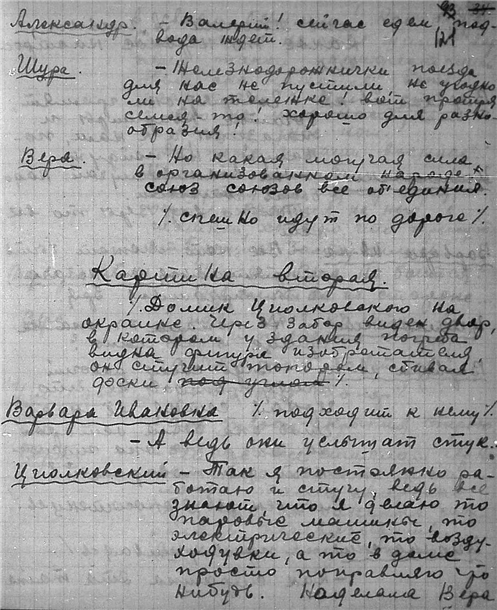 Александр. - Валерий! сейчас едем, под-
вода ждет.
Шура. - Железнодорожнички поезда
для нас не пустили. Не угодно
ли на тележке! вот против
семая-то! хорошо для разно-
образия!
Вера. - Но какая могучая сила
в организованном народе
союз союзов все объединил.
% спешно идут по дороге %.
Картина вторая.
% Домик Циолковского на
окраине. Через забор виден двор,
в котором у здания погреба
видна фигура изобретателя,
он стучит топором, сбивая
доски, %
Варвара Ивановна % подходит к нему %
- А ведь они услышат стук.
Циолковский - Так я постоянно ра-
ботаю и стучу, ведь все
знают, что я делаю то
паровые машины, то
электрические, то возду-
ходувки, а то в доме
просто поправляю что
нибудь. Наделала Вера